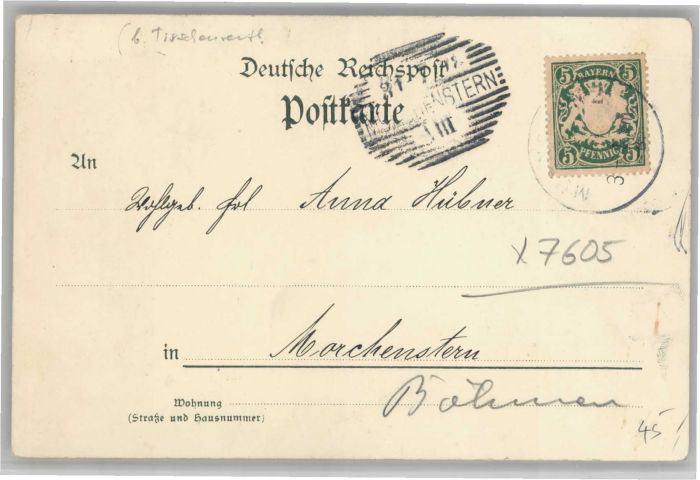 (b. Tirschenreuth
Deutsche Reichspost
Postkarte
MORCHENSTERN
BAYERN
5 5
5 PFENNIG 5
An
Wohlgeb. Frl Anna Hübner
x7605
in Morchenstern
Böhmen
Wohnung
(Straße und Hausnummer)
45